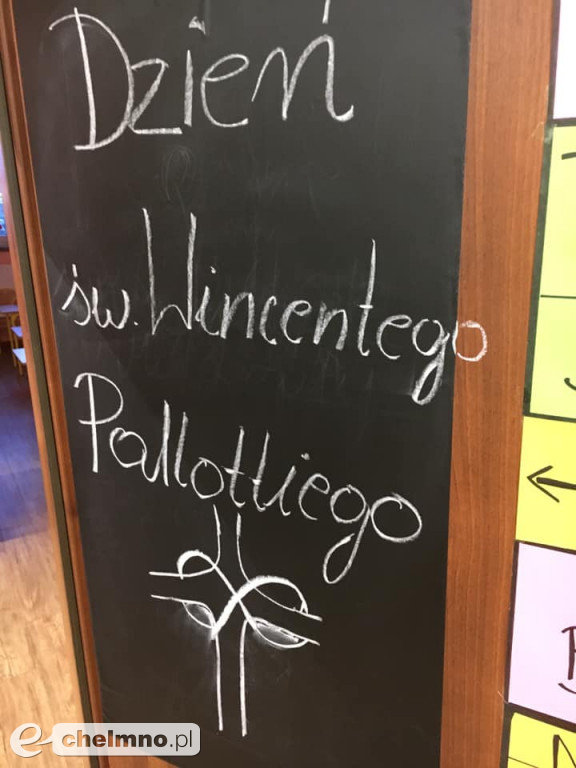 Dzień
św. Wincentego
Pallottiego
e-chelmno.pl